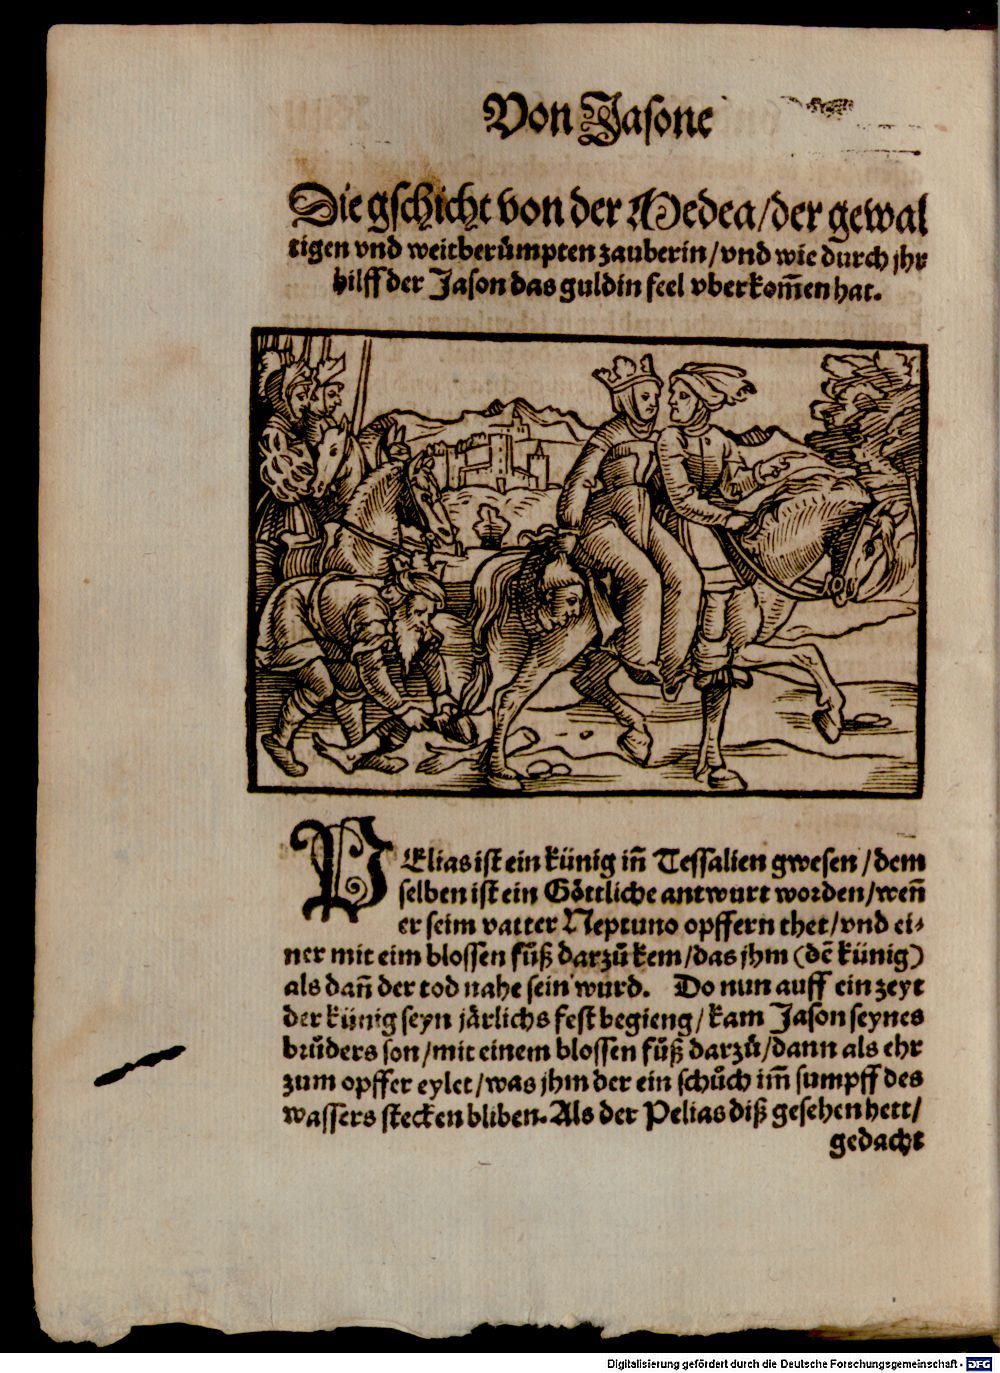 Von Jasone
Die gschicht von der Medea/der gewal
tigen vnd weitberümpten zauberin/vnd wie durch jhr
hilff der Jason das guldin feel vberkom̃en hat.
PElias ist ein künig in̄ Tessalien gwesen/dem
selben ist ein Göttliche antwurt worden/wen̄
er seim vatter Neptuno opffern thet/vnd ei⸗
ner mit eim blossen fůß darzů kem/das jhm (dē künig)
als dan̄ der tod nahe sein wurd. Do nun auff ein zeyt
der künig seyn järlichs fest begieng/kam Jason seynes
brůders son/mit einem blossen fůß darzů/dann als ehr
zum opffer eylet/was jhm der ein schůch im̄ sumpff des
wassers stecken bliben. Als der Pelias diß gesehen hett/
gedacht
Digitalisierung gefördert durch die Deutsche Forschungsgemeinschaft - DFG